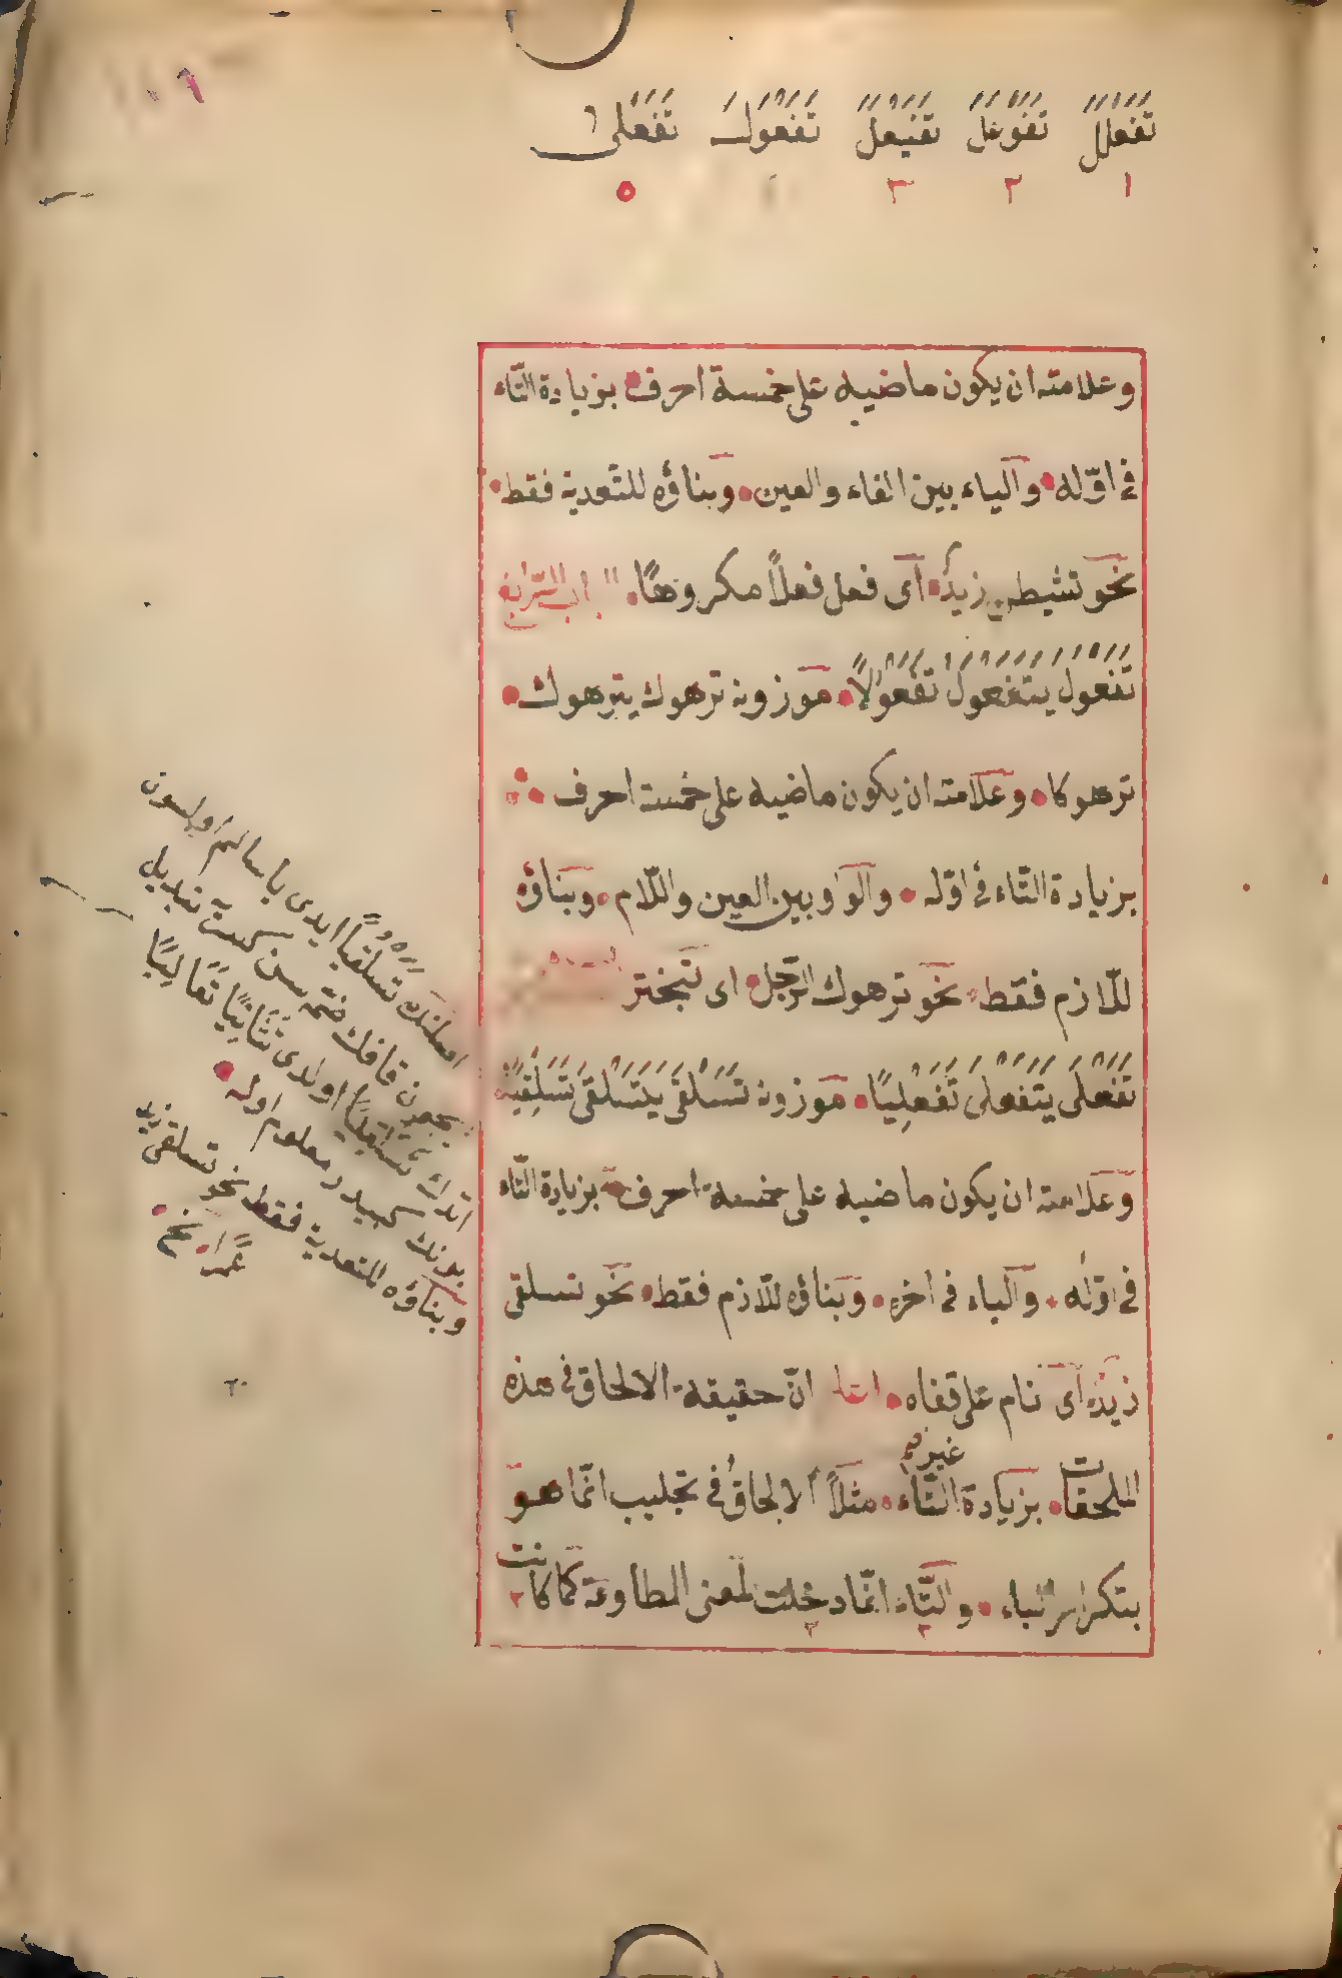 تَفَعْلَلَ تَفَوْعَلَ تَفَيْعَلَ تَفَعْوَلَ تَفَعْلَى
١ ٢ ٣ ٥
وعلامته ان يكون ماضيه على خمسة احرف بزيادة التّاء
فى اوّله والياء بين الفاء والعين وبناؤه للتعدية فقط
نحو تشيطن زيد اى فعل فعلاً مكروهًا الباب الرّابع
تَفَعْوَلَ يَتَفَعْوَلُ تَفَعْوُلاً موزونه ترهوك يترهوك
ترهوكا وعلامته ان يكون ماضيه على خمسة احرف
بزيادة التّاء فى اوّله والواو بين العين واللّام وبناؤه
للّازم فقط نحو ترهوك الرّجل اى تبختر
تَفَعْلَى يَتَفَعْلَى تَفَعْلِيًا موزونه تَسَلْقَى يَتَسَلْقَى تَسَلْقِيًا
وعلامته ان يكون ماضيه على خمسة احرف بزيادة التّاء
فى اوّله والياء فى اخره وبناؤه للّازم فقط نحو تسلقى
زيد اى نام على قفاه انّ حقيقة الالحاق فى هذه
الملحقات بزيادة غير التّاء مثلاً الالحاقُ فى تجلبب انّما هو
بتكرار الباء والتّاء انّما دخلت لمعنى المطاوعة كما كانت
اصلنك تَسَلْقُيًا ايدى يا سالم اولسون
ايچون قافك ضمّه سن كسره يه تبديل
اتدك تَسَلْقِيًا اولدى
بونك كبيدر معلوم اوله
وبناؤه للتعدية فقط نحو تسلقى زيد